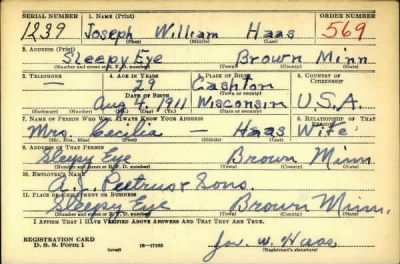 SERIAL NUMBER 1. NAME (Print) ORDER NUMBER
1239 Joseph William Haas 569
(First) (Middle) (Last)
2. ADDRESS (Print)
Sleepy Eye Brown Minn
(Number and street or R. F. D. number) (Town) (County) (State)
3. TELEPHONE 4. AGE IN YEARS 5. PLACE OF BIRTH 6. COUNTRY OF CITIZENSHIP
— 29 Cashton
DATE OF BIRTH (Town or county)
Aug 4, 1911 Wisconsin U.S.A.
(Exchange) (Number) (Mo.) (Day) (Yr.) (State or country)
7. NAME OF PERSON WHO WILL ALWAYS KNOW YOUR ADDRESS 8. RELATIONSHIP OF THAT PERSON
Mrs. Cecilia — Haas Wife
(Mr., Mrs., Miss) (First) (Middle) (Last)
9. ADDRESS OF THAT PERSON
Sleepy Eye Brown Minn.
(Number and street or R. F. D. number) (Town) (County) (State)
10. EMPLOYER'S NAME
A.J. Pietrus & Sons.
11. PLACE OF EMPLOYMENT OR BUSINESS
Sleepy Eye Brown Minn.
(Number and street or R. F. D. number) (Town) (County) (State)
I AFFIRM THAT I HAVE VERIFIED ABOVE ANSWERS AND THAT THEY ARE TRUE.
REGISTRATION CARD
D. S. S. Form 1 (over) 16—17105 Jos. W. Haas
(Registrant's signature)